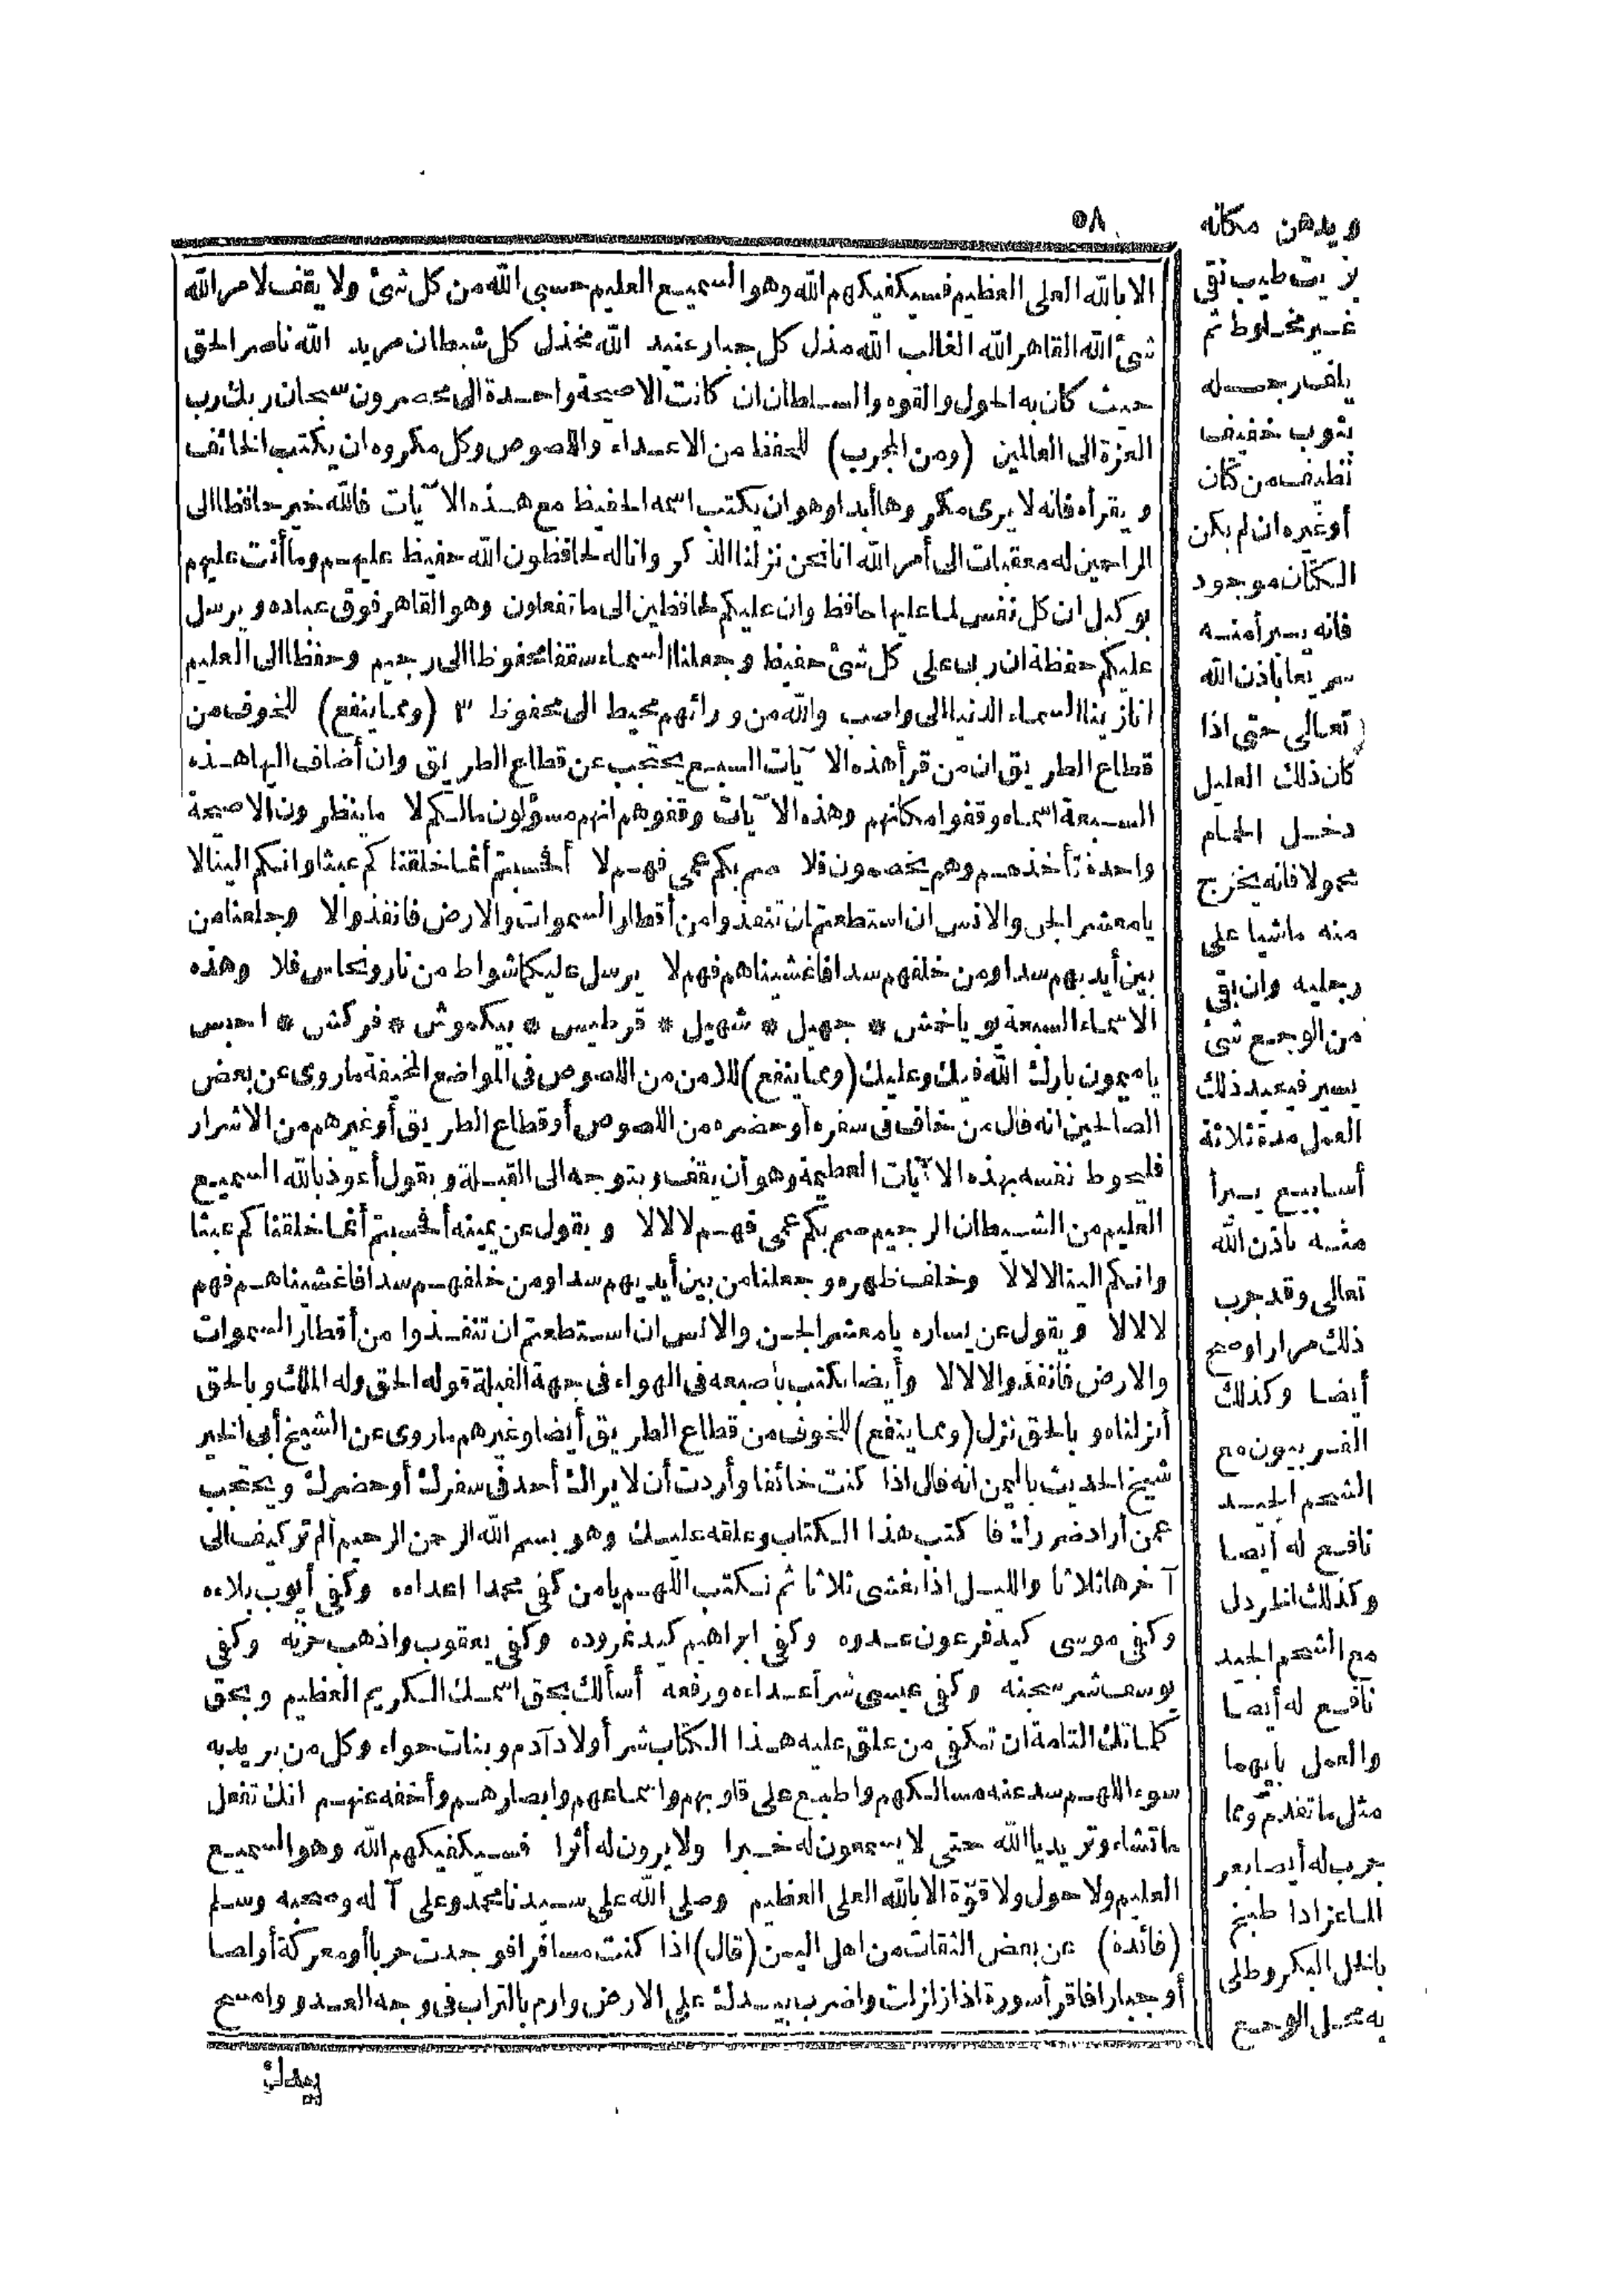 ٥٨
الا بالله العلى العظيم فسيكفيكهم الله وهو السميع العليم حسبى الله من كل شئ ولا يقف لامر الله
شئ الله القاهر الله الغالب الله مذل كل جبار عنيد الله مخذل كل شيطان مريد الله ناصر الحق
حيث كان به الحول والقوه والسلطان ان كانت الا صيحة واحدة الى محضرون سبحان ربك رب
العزة الى العالمين (ومن المجرب) للحفظ من الاعداء واللصوص وكل مكروه ان يكتب الخائف
ويقرأه فانه لا يرى مكروها أبدا وهو ان يكتب اسمه الحفيظ مع هذه الآيات فالله خير حافظا الى
الراحمين له معقبات الى أمر الله انا نحن نزلنا الذكر وانا له لحافظون الله حفيظ عليهم وما أنت عليهم
بوكيل ان كل نفس لما عليها حافظ وان عليكم لحافظين الى ما تفعلون وهو القاهر فوق عباده ويرسل
عليكم حفظة ان ربى على كل شئ حفيظ وجعلنا السماء سقفا محفوظا الى رجيم وحفظا الى العليم
انا زينا السماء الدنيا الى واصب والله من ورائهم محيط الى محفوظ ٣ (ومما ينفع) للخوف من
قطاع الطريق ان من قرأ هذه الآيات السبع يحتجب عن قطاع الطريق وان أضاف اليها هذه
السبعة اسماء وقفوا مكانهم وهذه الآيات وقفوهم انهم مسؤلون مالكم لا ما ينظرون الا صيحة
واحدة تأخذهم وهم يخصمون فلا صم بكم عمى فهم لا أفحسبتم أنما خلقناكم عبثا وانكم الينا لا
يا معشر الجن والانس ان استطعتم ان تنفذوا من أقطار السموات والارض فانفذوا لا وجعلنا من
بين أيديهم سدا ومن خلفهم سدا فاغشيناهم فهم لا يرسل عليكما شواظ من نار ونحاس فلا وهذه
الاسماء السبعة يوياخش * جهيل * شهيل * قرطيس * بيكموش * فركش * احبس
يا ميمون بارك الله فيك وعليك (ومما ينفع) للامن من اللصوص فى المواضع المخيفة ما روى عن بعض
الصالحين انه قال من خاف فى سفره أو حضره من اللصوص أو قطاع الطريق أو غيرهم من الاشرار
فليحوط نفسه بهذه الآيات العظيمة وهو أن يقف ويتوجه الى القبلة ويقول أعوذ بالله السميع
العليم من الشيطان الرجيم صم بكم عمى فهم لا لا لا ويقول عن يمينه أفحسبتم أنما خلقناكم عبثا
وانكم الينا لا لا لا وخلف ظهره وجعلنا من بين أيديهم سدا ومن خلفهم سدا فاغشيناهم فهم
لا لا لا ويقول عن يساره يا معشر الجن والانس ان استطعتم ان تنفذوا من أقطار السموات
والارض فانفذوا لا لا لا وأيضا يكتب بأصبعه فى الهواء فى جهة القبلة قوله الحق وله الملك وبالحق
أنزلناه وبالحق نزل (ومما ينفع) للخوف من قطاع الطريق أيضا وغيرهم ما روى عن الشيخ أبى الخير
شيخ الحديث باليمن انه قال اذا كنت خائفا وأردت أن لا يراك أحد فى سفرك أو حضرك ويحتجب
عمن أراد ضررك فا كتب هذا الكتاب وعلقه عليك وهو بسم الله الرحمن الرحيم ألم تر كيف الى
آخرها ثلاثا والليل اذا يغشى ثلاثا ثم تكتب اللهم يا من كفى محمدا اعداءه وكفى أيوب بلاءه
وكفى موسى كيد فرعون عدوه وكفى ابراهيم كيد نمروده وكفى يعقوب واذهب حزنه وكفى
يوسف شر سجنه وكفى عيسى شر أعداءه ورفعه أسألك بحق اسمك الكريم العظيم وبحق
كلماتك التامة ان تكفى من علق عليه هذا الكتاب شر أولاد آدم وبنات حواء وكل من يريد به
سوء اللهم سد عنه مسالكهم واطبع على قلوبهم واسماعهم وابصارهم وأخفه عنهم انك تفعل
ما تشاء وتريد يا الله حتى لا يسمعون له خبرا ولا يرون له أثرا فسيكفيكهم الله وهو السميع
العليم ولا حول ولا قوّة الا بالله العلى العظيم وصلى الله على سيدنا محمد وعلى آله وصحبه وسلم
(فائدة) عن بعض الثقات من اهل اليمن (قال) اذا كنت مسافرا فوجدت حربا أو معركة أو لصا
أو جبارا فاقرأ سورة اذا زلزلت واضرب بيدك على الارض وارم بالتراب فى وجه العدو وامسح
ويدهن مكانه
بزيت طيب نقى
غير مخلوط ثم
يلف
بثوب خفيف
نظيف من كتان
أو غيره ان لم يكن
الكتان موجود
فانه يبرأ منه
سريعا باذن الله
تعالى حتى اذا
كان ذلك العليل
دخل الحمام
محمولا فانه يخرج
منه ماشيا على
رجليه وان بقى
من الوجع شئ
يسير فيعيد ذلك
العمل مدة ثلاثة
أسابيع يبرأ
منه باذن الله
تعالى وقد جرب
ذلك مرارا وصح
أيضا وكذلك
الفربيون مع
الشحم الجيد
نافع له أيضا
وكذلك الخردل
مع الشحم الجيد
نافع له أيضا
والعمل بأيهما
مثل ما تقدم ومما
جرب له أيضا بعر
الماعز اذا طبخ
بالخل البكر وطلى
به محل الوجع